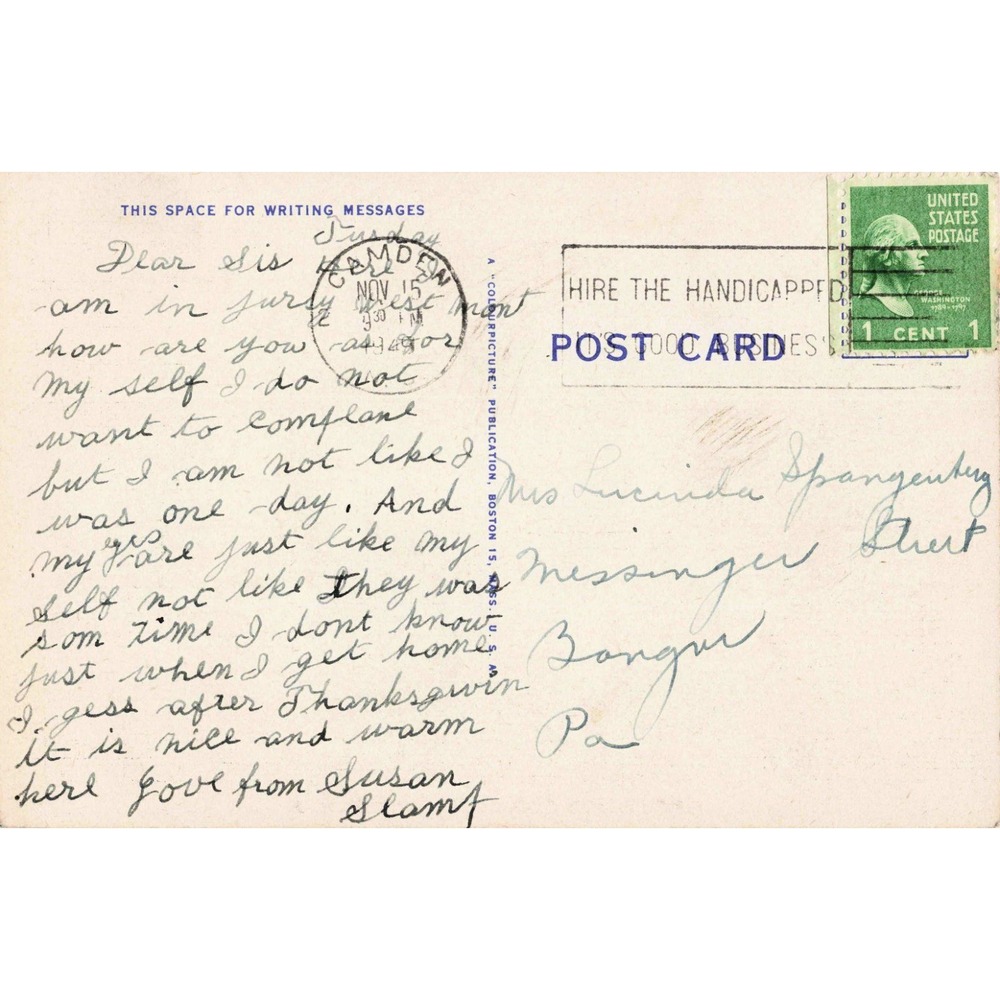 THIS SPACE FOR WRITING MESSAGES
Tusday
Dear Sis Here I
am in Jursy West mont
how are you as for
my self I do not
want to complane
but I am not like I
was one day. And
my yes are just like my
self not like they was
som time I dont know
just when I get home
I gess after Thanksgivin
it is nice and warm
here Love from Susan
Slamp
CAMDEN
NOV 15
9 30 PM
1949
HIRE THE HANDICAPPED
IT'S GOOD BUSINESS
UNITED
STATES
POSTAGE
GEORGE
WASHINGTON
1789-1797
1 CENT 1
POST CARD
A "COLOURPICTURE" PUBLICATION, BOSTON 15, MASS. U. S. A.
Mrs Lucinda Spangenburg
Messinger Street
Bangor
Pa